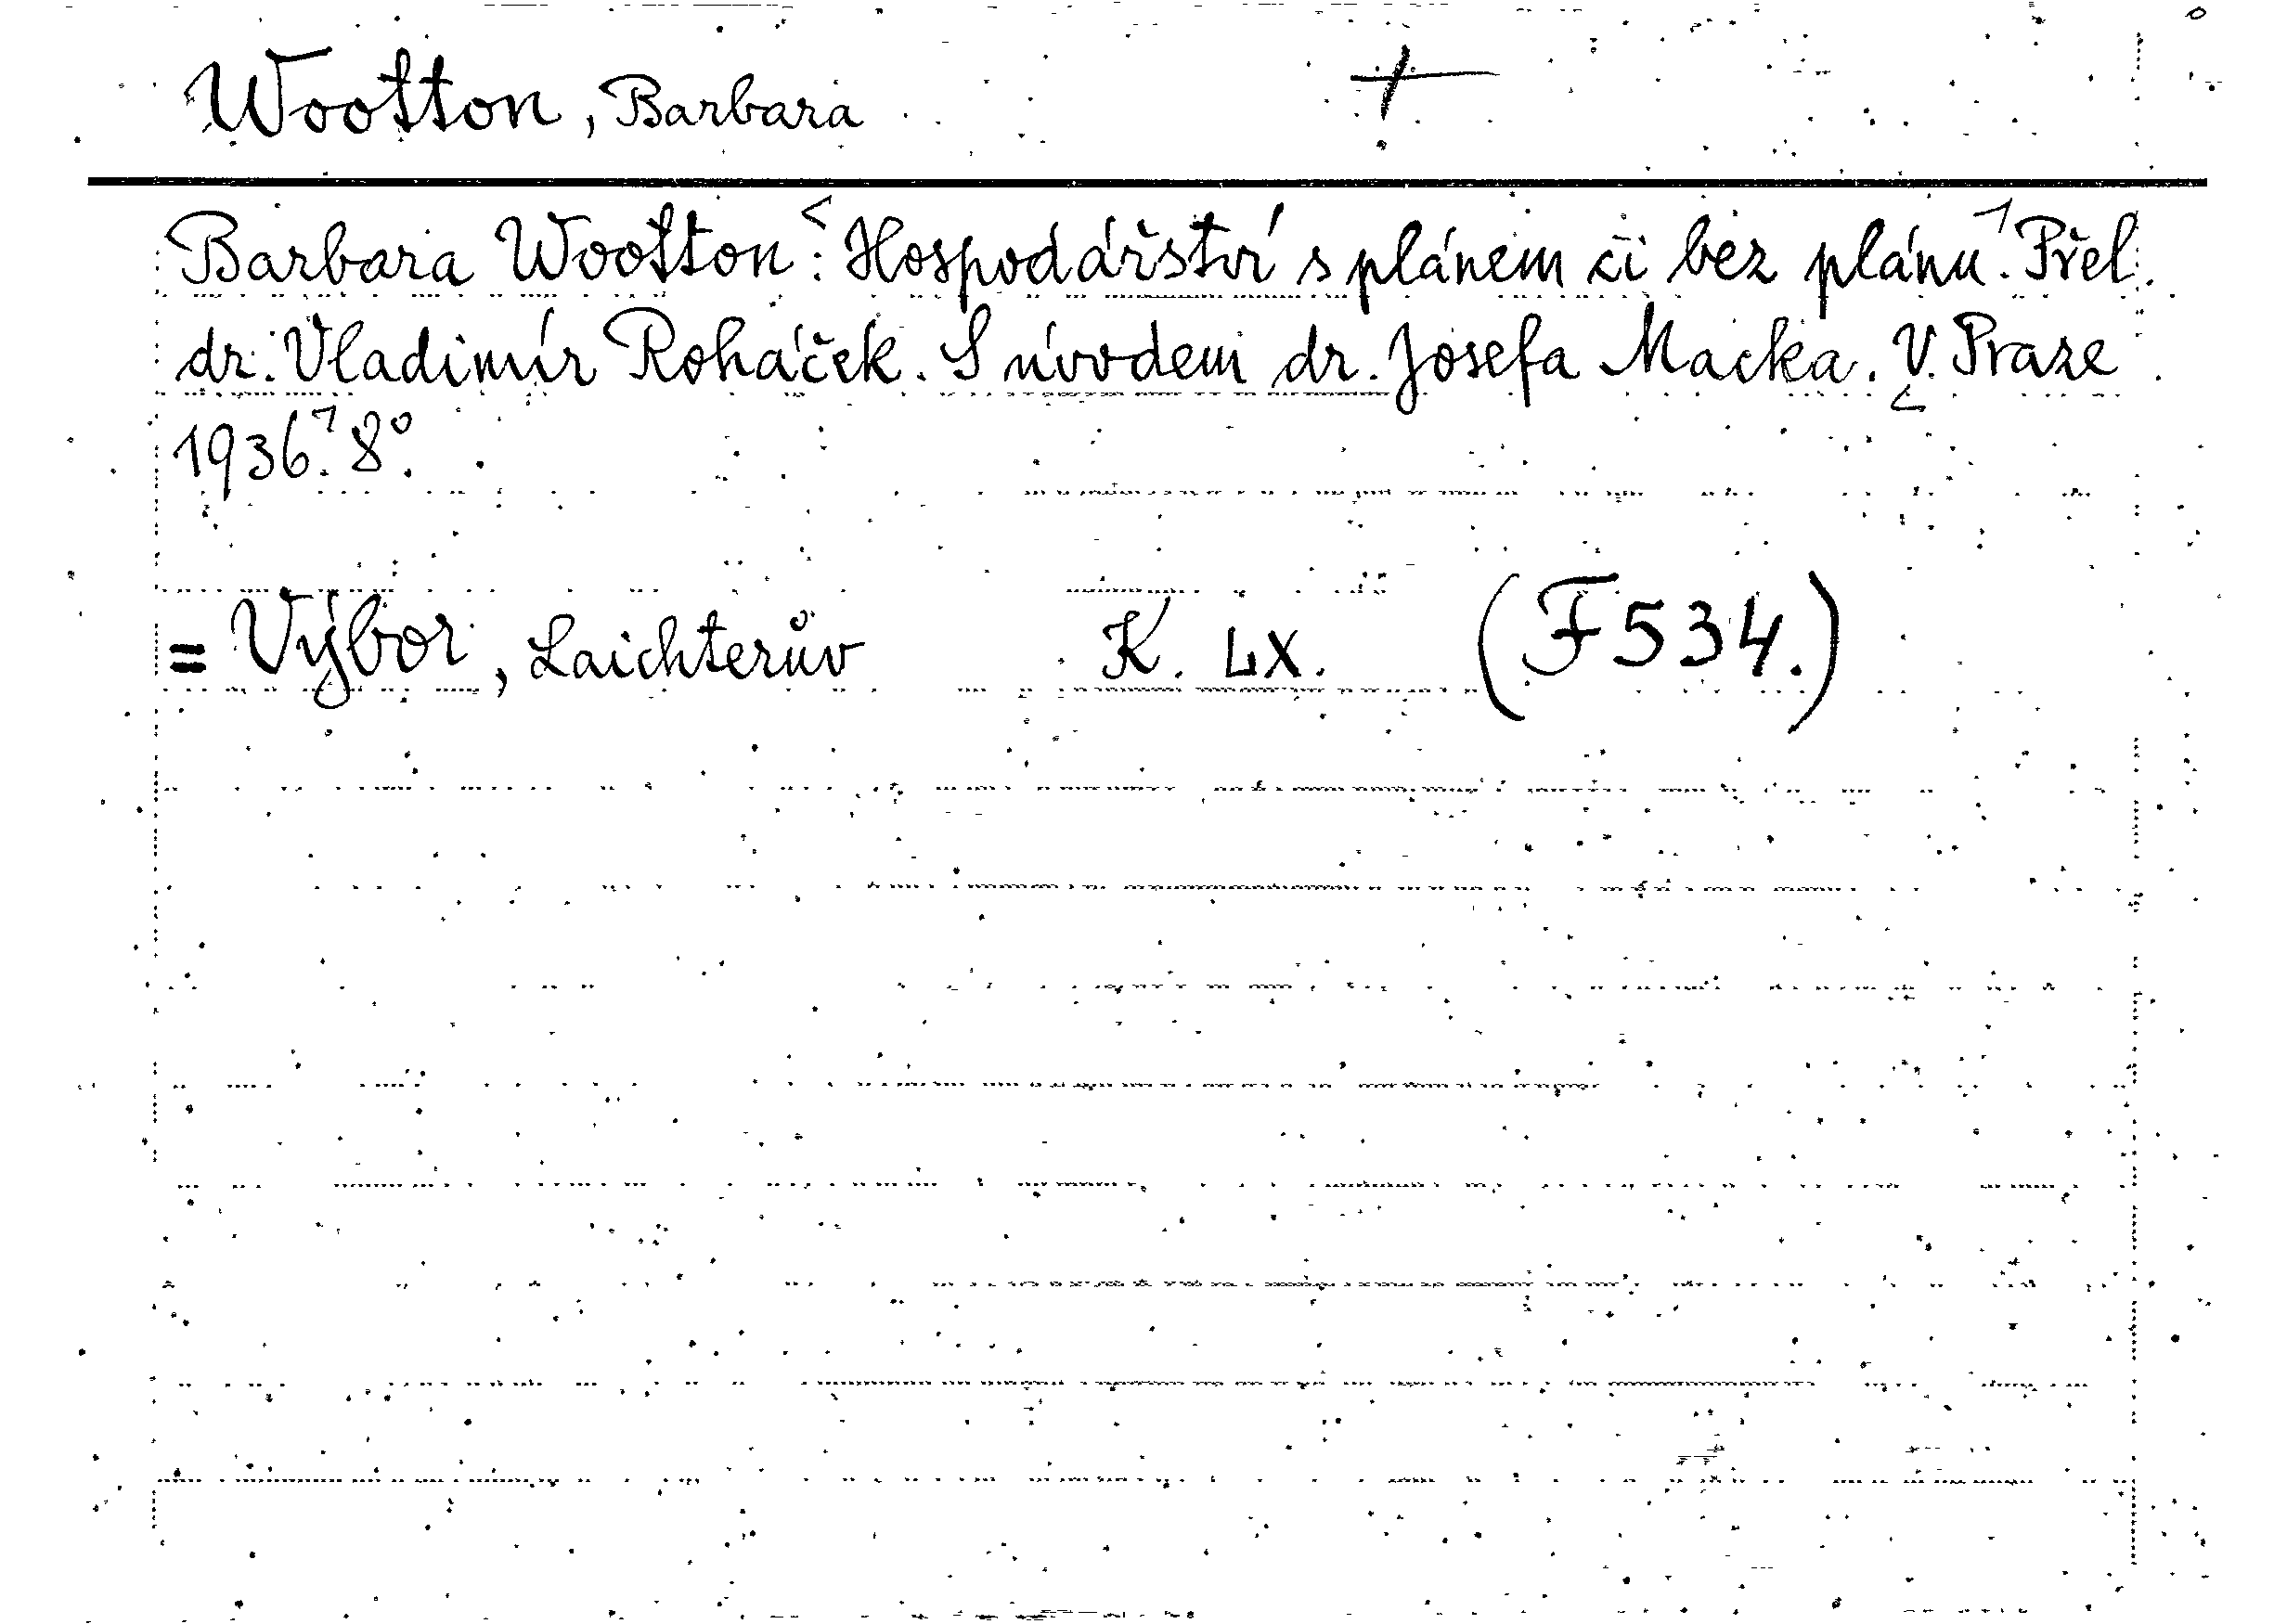 Wootton, Barbara +
Barbara Wootton: Hospodářství s plánem či bez plánu. Přel.
dr. Vladimír Roháček. S úvodem dr. Josefa Macka. V Praze
1936. 8°.
= Výbor, Laichterův K. LX. (F534.)